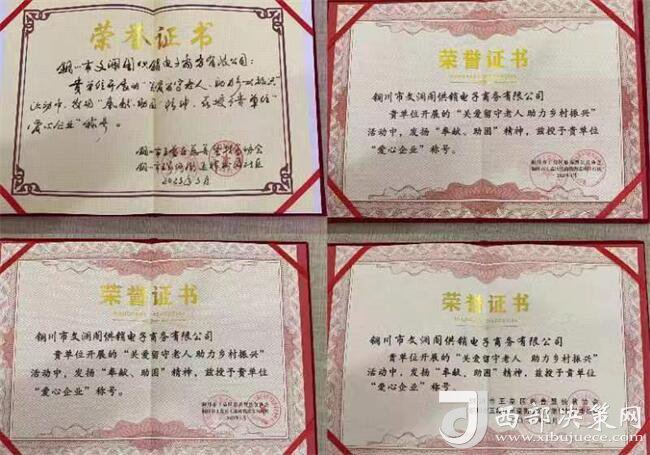 荣誉证书
铜川市文澜阁供销电子商务有限公司：
贵单位开展的“关爱留守老人、助力乡村振兴”
活动中，发扬“奉献、助困”精神，兹授予贵单位
“爱心企业”称号。
2023年5月
荣誉证书
铜川市文澜阁供销电子商务有限公司
贵单位开展的“关爱留守老人 助力乡村振兴”
活动中，发扬“奉献、助困”精神，兹授予贵单位
“爱心企业”称号。
荣誉证书
铜川市文澜阁供销电子商务有限公司
贵单位开展的“关爱留守老人 助力乡村振兴”
活动中，发扬“奉献、助困”精神，兹授予贵单位
“爱心企业”称号。
荣誉证书
铜川市文澜阁供销电子商务有限公司
贵单位开展的“关爱留守老人 助力乡村振兴”
活动中，发扬“奉献、助困”精神，兹授予贵单位
“爱心企业”称号。
西部决策网
www.xibujuece.com